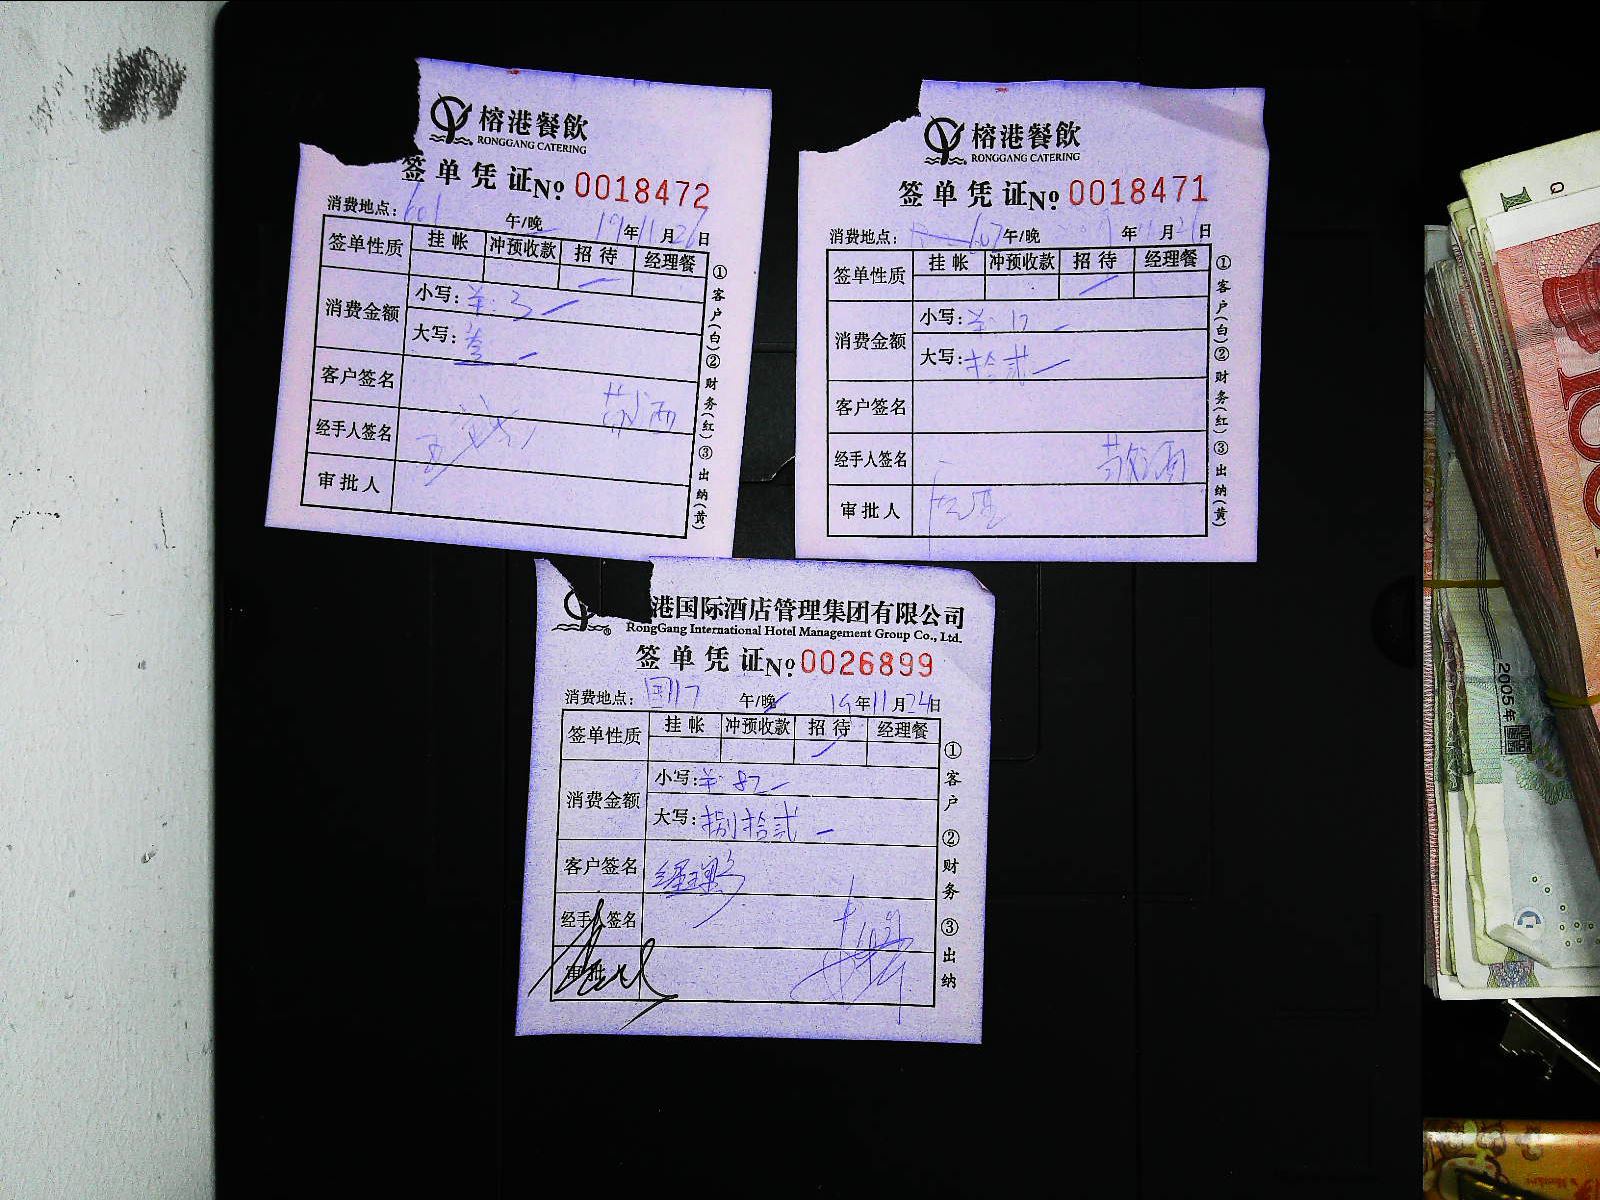 榕港餐飲
RONGGANG CATERING
签单凭证No 0018472
消费地点: 601 午/晚 19年11月26日
签单性质 挂帐 冲预收款 招待 经理餐
消费金额
小写: 羊: 3
大写: 叁
客户签名
经手人签名
审批人
①客户(白)②财务(红)③出纳(黄)
榕港餐飲
RONGGANG CATERING
签单凭证No 0018471
消费地点: 607 午/晚 2019年11月26日
签单性质 挂帐 冲预收款 招待 经理餐
消费金额
小写: 羊: 12
大写: 拾贰
客户签名
经手人签名
审批人
①客户(白)②财务(红)③出纳(黄)
港国际酒店管理集团有限公司
RongGang International Hotel Management Group Co., Ltd.
签单凭证No 0026899
消费地点: 国117 午/晚 19年11月24日
签单性质 挂帐 冲预收款 招待 经理餐
消费金额
小写: 羊: 82
大写: 捌拾贰
客户签名
经手人签名
审批人
①客户 ②财务 ③出纳
2005年